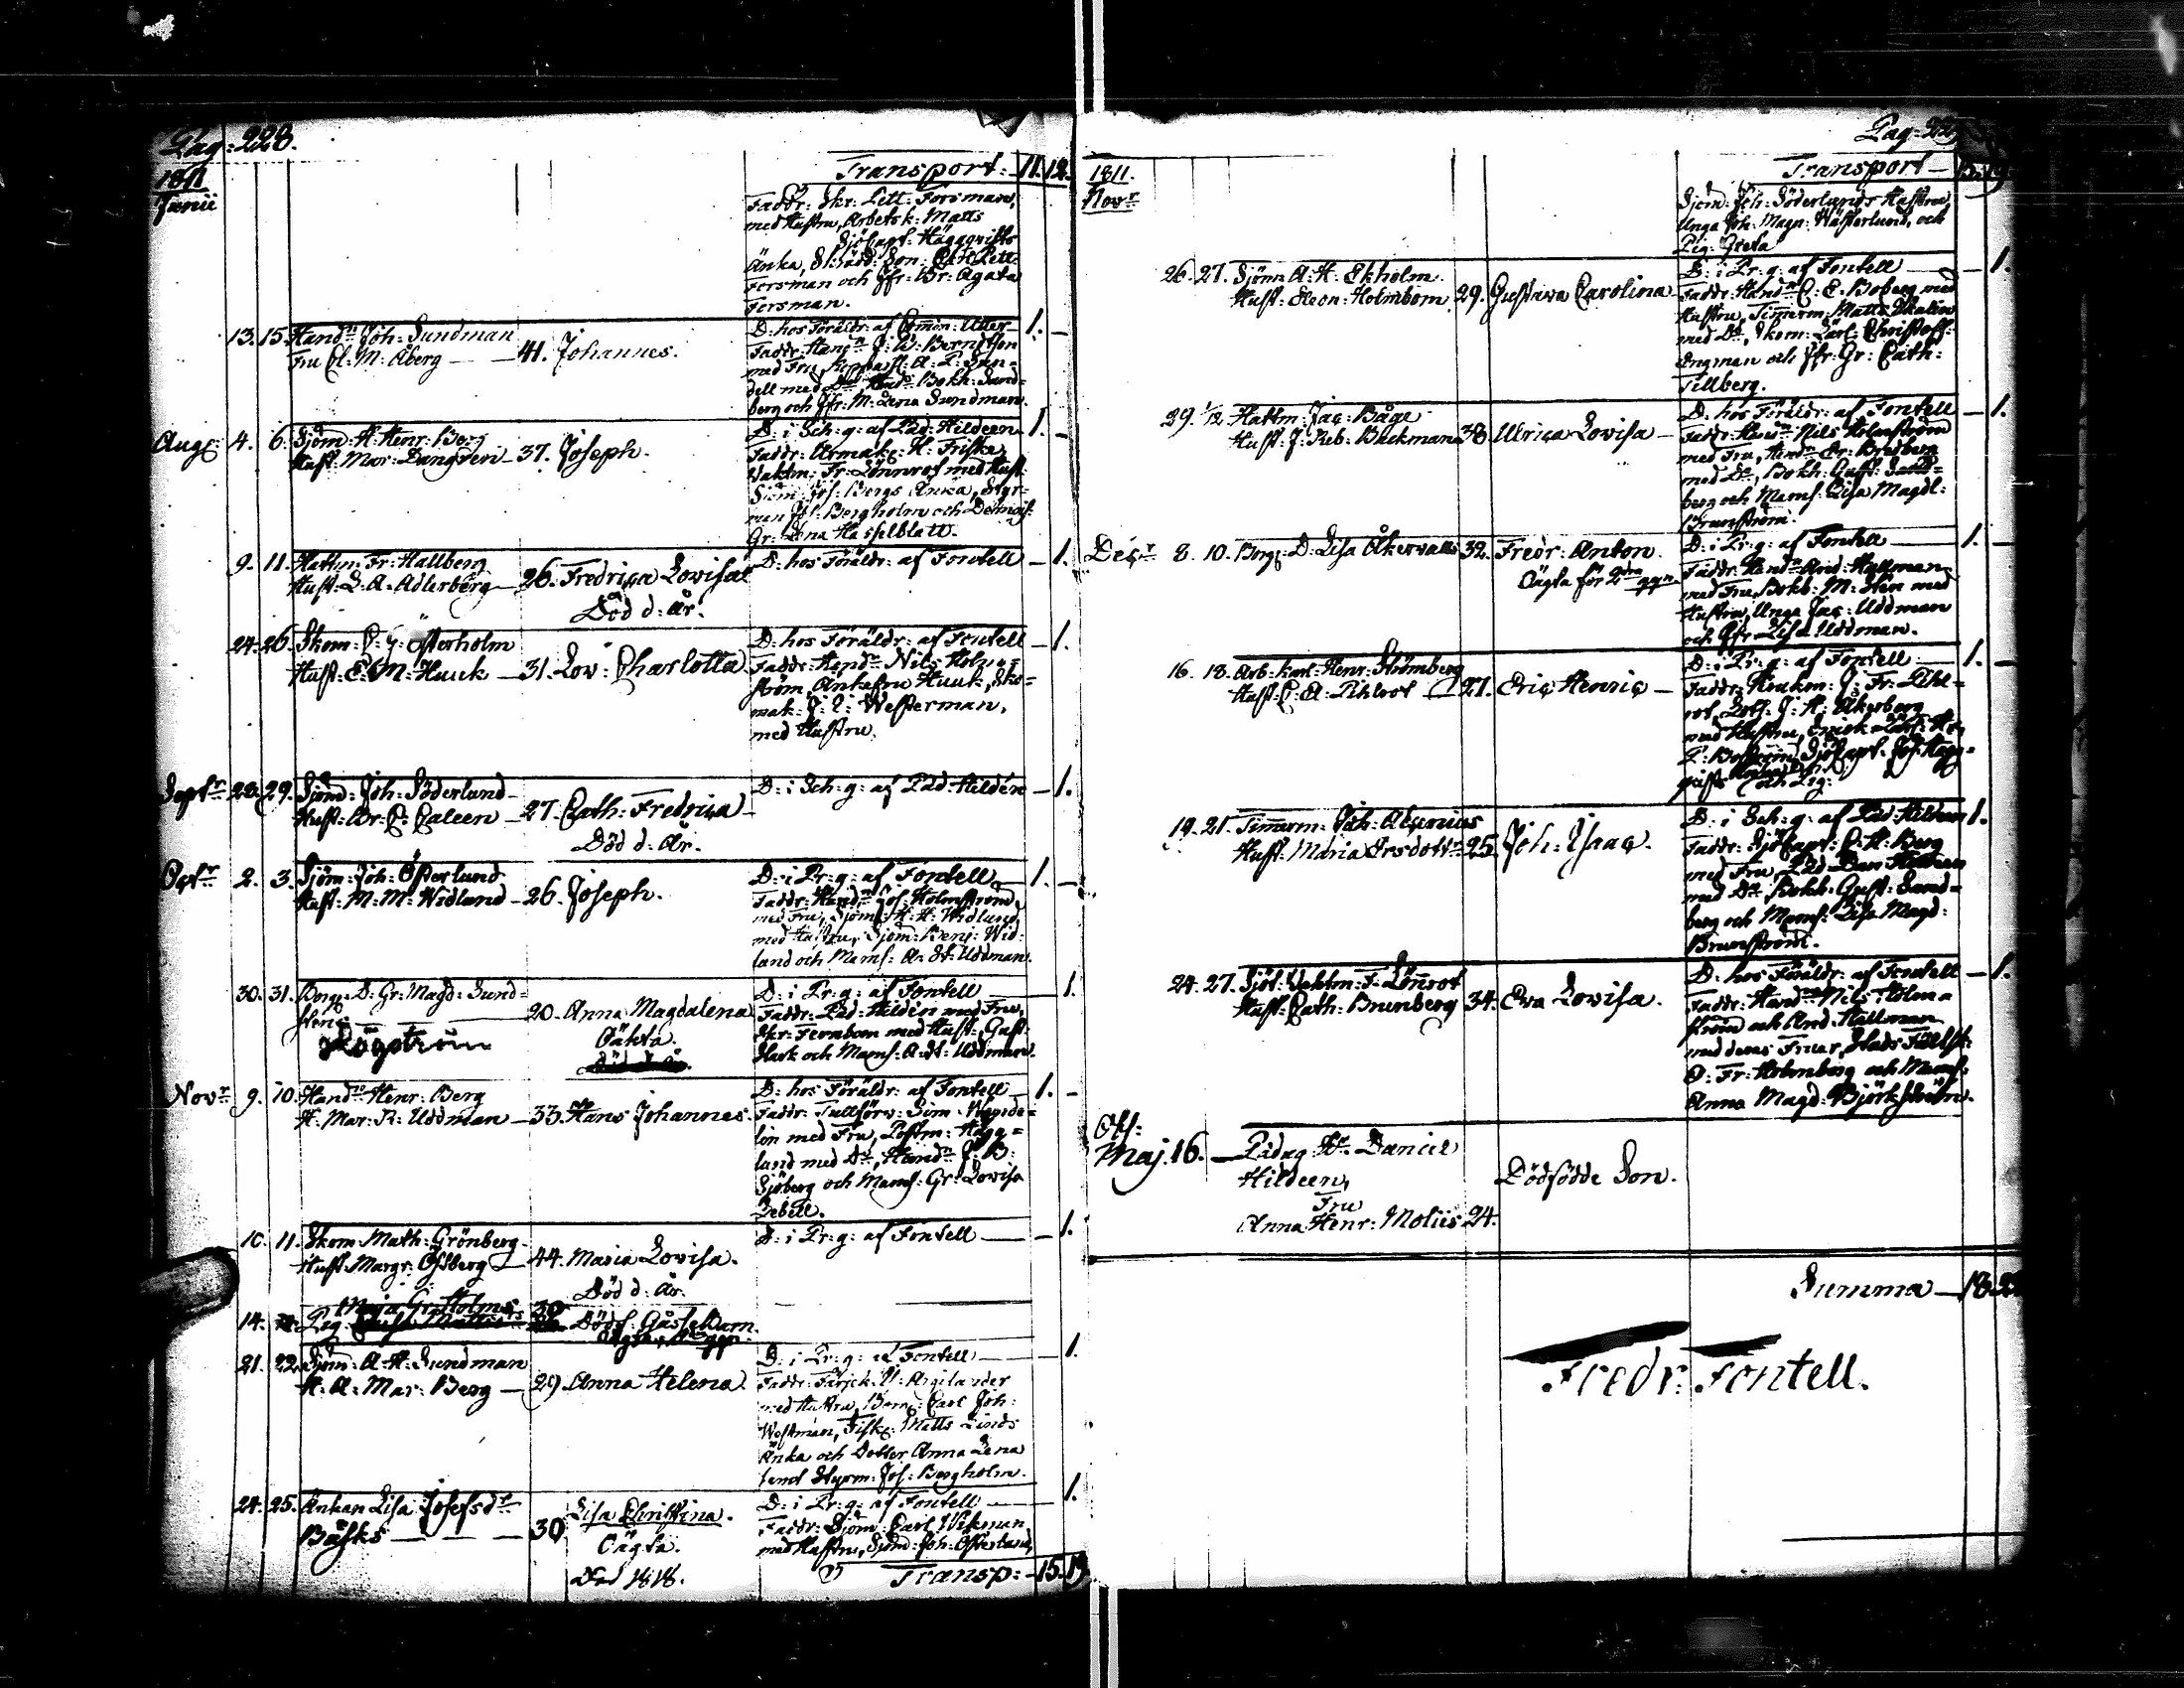 Pag: 228.
1811
Junii
Transport: 11. 12.
Faddr: Skr: Pett: Forsman,
med Hustru, Arbetsk: Matts
Sjöcapt: Häggqvists
Änka, Skrädd: Son: Pett
Forsman och Jfr: Br: Agata
Forsman.
13. 15. Handn Joh: Sundman
Fru C: M: Åberg — 41. Johannes.
D: hos Föräldr: af Comin: Utter 1. —
Faddr: Handn J: W: Berndtson
med Fru, A: P: Sun=
dell med Do, Handn Bokh: Sund=
berg och Jfr: M: Lena Sundman.
Aug: 4. 6. Sjöm: H: Henr: Berg
Hust: Mar: Dungren — 37. Joseph.
D: i Sch: g: af Päd: Hildeen 1. —
Faddr: H: Friske
Vaktm: Fr: Lönnrot med Hust:
Sjöm: Jos: Bergs Änka, Styr=
man Jos: Bergholm och Demois:
Gr: Lena Hasselblatt.
9. 11. Hattm: Fr: Hallberg
Hust: L: A: Adlerberg — 26. Fredrica Lovisa
Död d: År.
D: hos Föräldr: af Fontell — 1.
24. 26. Skom: C: G: Österholm
Hust: E: M: Huuk — 31. Lov: Charlotta
D: hos Föräldr: af Fontell — 1.
Faddr: Handn Nils Holm=
ström, Änkefru Huuk, Sko=
mak: J: E: Westerman,
med Hustru.
Septr 28. 29. Sjöm: Joh: Söderlund
Hust: Br: C: Caleen — 27. Cath: Fredrica
Död d: År.
D: i Sch: g: af Päd: Hildén — 1.
Octr 2. 3. Sjöm: Joh: Österlund
Hust: M: M: Widlund — 26. Joseph.
D: i Pr: g: af Fontell — 1. —
Faddr: Handn Jos: Holmström
med Fru, Sjöm: H: H: Widlund
med Hustru, Sjöm: Benj: Wid=
lund och Mams: A: St: Uddman.
30. 31. Borg: D: Gr: Magd: Sund=
sten
Rögström
20. Anna Magdalena
Oäkta.
D: i Pr: g: af Fontell — 1.
Faddr: Päd: Hildén med Fru,
Skr: Fernbom med Hust: Gust:
Stark och Mams: A: St: Uddman.
Novr 9. 10. Handn Henr: Berg
H: Mar: R: Uddman — 33. Hans Johannes.
D: hos Föräldr: af Fontell — 1. —
Faddr: Tullförv: Sim: Wende=
lin med Fru, Postm: Hägg=
lund med Do, Handn J: B:
Sjöberg och Mams: Gr: Lovisa
Lebell.
10. 11. Skom: Math: Grönberg
Hust: Margr: Ostberg — 44. Maria Lovisa.
Död d: År.
D: i Pr: g: af Fontell — 1.
14. Pig: Maja Gr: Holms 30 Dödf: Gåsse Barn.
21. 22. Sjöm: A: H: Sundman
H: A: Mar: Berg — 29. Anna Helena.
D: i Pr: g: af Fontell — 1.
Faddr: Färjek: Argilander
med Hustru, Carl Joh:
Westman, Fisk: Matts Linds
Änka och Dotter Anna Lena
samt Styrm: Jos: Bergholm.
24. 25. Änkan Lisa Josefsdr
Båsks — 30 Lisa Christina.
Oägta.
Död 1818.
D: i Pr: g: af Fontell — 1.
Faddr: Sjöm: Carl Wikman
med Hustru, Sjöm: Joh: Österlund,
Transp: 15. 19.
Pag: 229
1811.
Novr
Transport — 15. 19.
Sjöm: Joh: Söderlunds Hustru,
Unga Joh: Magn: Wästerlund, och
Pig: Greta
26. 27. Sjöm: A: H: Ekholm
Hust: Eleon: Holmbom 29. Gustava Carolina
D: i Pr: g: af Fontell — 1.
Faddr: Handn C: E: Boberg med
Hustru, Timmerm: Matts Skatin
med Do, Skom: Lärl: Christoff:
Engman och Jfr: Gr: Cath:
Tillberg.
29. 1/12. Hattm: Jac: Båge
Hust: J: Reb: Backman 38. Ulrica Lovisa —
D: hos Föräldr: af Fontell — 1.
Faddr: Handn Nils Holmström
med Fru, Handn Er: Bredberg
med Do, Bokh: Gust: Sand=
berg och Mams: Lisa Magdl:
Brunström.
Decr 8. 10. Borg: D: Lisa Åkervalls 32. Fredr: Anton.
Oägta för 2dra ggn
D: i Pr: g: af Fontell — 1. —
Faddr: Handn And: Hallman
med Fru, Bokh: M: Hen med
Hustru, Unga Jac: Uddman
och Jfr Lisa Uddman.
16. 18. Arb: karl: Henr: Strömberg
Hust: C: A: Pihlrot — 27. Eric Henric —
D: i Pr: g: af Fontell — 1. —
Faddr: J: Fr: Pihl=
rot, Lots: J: H: Åkerberg
med Hustru,
Sjöcapt: Jos: Hägg=
qvists och Pig:
19. 21. Timmerm: Joh: Alcenius
Hust: Maria Ersdottr 25. Joh: Isaac.
D: i Sch: g: af Päd: Hildeen 1.
Faddr: Sjöcapt: C: H: Berg
med Fru, Päd: Dan: Hildeen
med Do Bokh: Gust: Sand=
berg och Mams: Lisa Magd:
Brunström.
24. 27. Sjöt: Vaktm: F: Lönnrot
Hust: Cath: Brunberg 34. Eva Lovisa.
D: hos Föräldr: af Fontell — 1.
Faddr: Handn Nils Holm=
ström och And: Hallman
med deras Fruar, Stads Fältsk:
O: Fr: Holmberg och Mams:
Anna Magd: Björkström.
Obs:
Maj. 16. — Pädag: Hr Daniel
Hildeen,
Fru
Anna Henr: Moliis 24.
Dödfödde Son.
Summa — 18.
Fredr: Fontell.